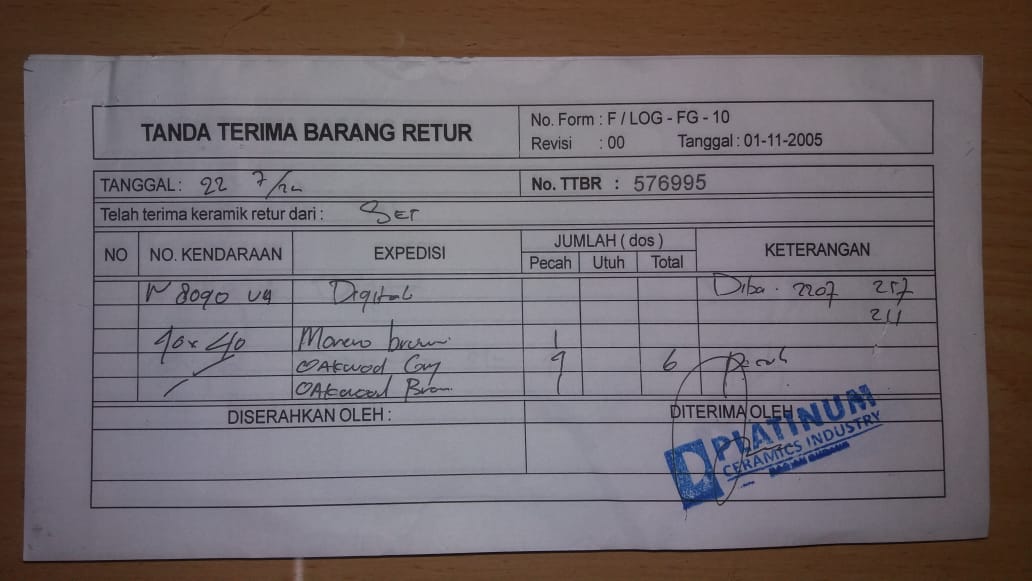 TANDA TERIMA BARANG RETUR
No. Form : F / LOG - FG - 10
Revisi : 00 Tanggal : 01-11-2005
TANGGAL : 22 7/24
No. TTBR : 576995
Telah terima keramik retur dari :
NO NO. KENDARAAN EXPEDISI JUMLAH ( dos ) KETERANGAN
Pecah Utuh Total
N 8090 Digital Diba . 2207 257
211
40 x 40 Moreno brown 1
Oakwood Gry 6 Pecah
Oakwood Brown
DISERAHKAN OLEH : DITERIMA OLEH
PLATINUM
CERAMICS INDUSTRY